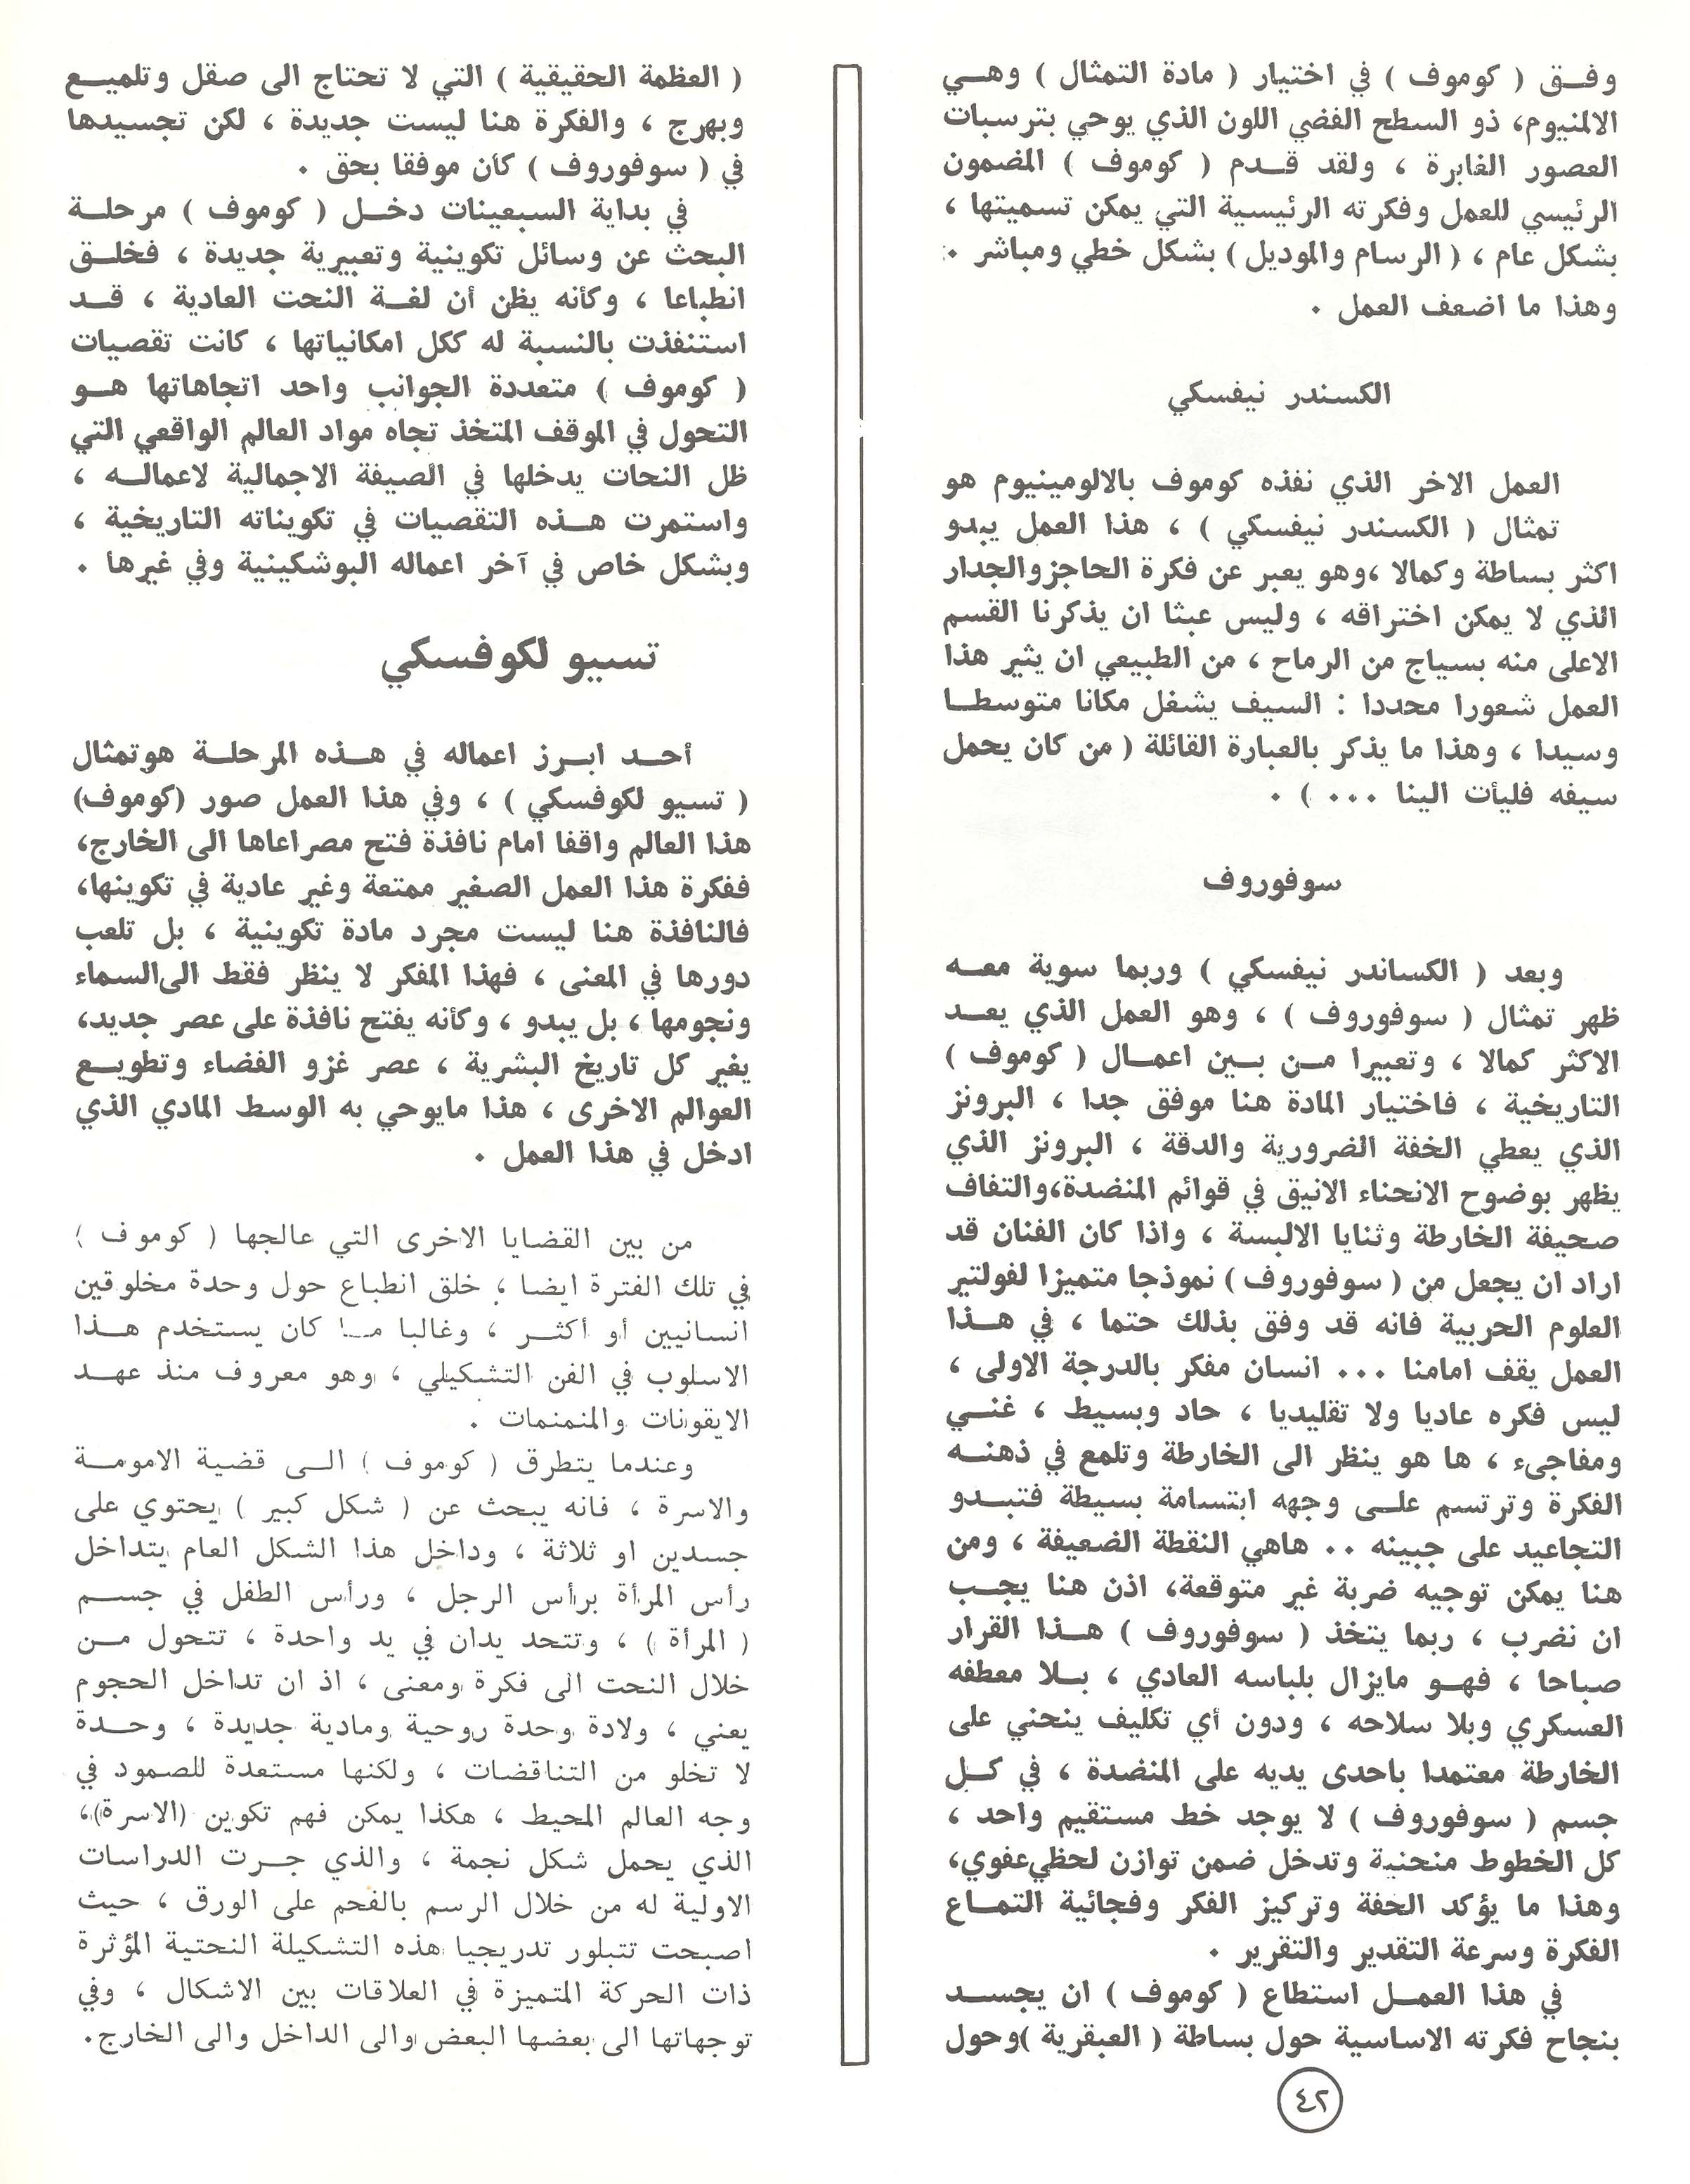 وفـــق ( كوموف ) في اختيار ( مادة التمثال ) وهـــي
الالمنيوم، ذو السطح الفضي اللون الذي يوحي بترسبات
العصور الغابرة ، ولقد قـــدم ( كوموف ) المضمون
الرئيسي للعمل وفكرته الرئيسية التي يمكن تسميتها ،
بشكل عام ، ( الرسام والموديل ) بشكل خطي ومباشر .
وهذا ما اضعف العمل .
الكسندر نيفسكي
العمل الاخر الذي نفذه كوموف بالالومينيوم هو
تمثال ( الكسندر نيفسكي ) ، هذا العمل يبدو
اكثر بساطة وكمالا ،وهو يعبر عن فكرة الحاجز والجدار
الذي لا يمكن اختراقه ، وليس عبثا ان يذكرنا القسم
الاعلى منه بسياج من الرماح ، من الطبيعي ان يثير هذا
العمل شعورا محددا : السيف يشغل مكانا متوسطـــا
وسيدا ، وهذا ما يذكر بالعبارة القائلة ( من كان يحمل
سيفه فليأت الينا ... ) .
سوفوروف
وبعد ( الكساندر نيفسكي ) وربما سوية معـــه
ظهر تمثال ( سوفوروف ) ، وهو العمل الذي يعـــد
الاكثر كمالا ، وتعبيرا مـــن بـــين اعمـــال ( كوموف )
التاريخية ، فاختيار المادة هنا موفق جدا ، البرونز
الذي يعطي الخفة الضرورية والدقة ، البرونز الذي
يظهر بوضوح الانحناء الانيق في قوائم المنضدة،والتفاف
صحيفة الخارطة وثنايا الالبسة ، واذا كان الفنان قد
اراد ان يجعل من ( سوفوروف ) نموذجا متميزا لفولتير
العلوم الحربية فانه قد وفق بذلك حتما ، في هـــذا
العمل يقف امامنا ... انسان مفكر بالدرجة الاولى ،
ليس فكره عاديا ولا تقليديا ، حاد وبسيط ، غنـــي
ومفاجىء ، ها هو ينظر الى الخارطة وتلمع في ذهنـــه
الفكرة وترتسم علـــى وجهه ابتسامة بسيطة فتبـــدو
التجاعيد على جبينه .. هاهي النقطة الضعيفة ، ومن
هنا يمكن توجيه ضربة غير متوقعة، اذن هنا يجـــب
ان نضرب ، ربما يتخذ ( سوفوروف ) هـــذا القرار
صباحا ، فهـــو مايزال بلباسه العادي ، بـــلا معطفه
العسكري وبلا سلاحه ، ودون أي تكليف ينحني على
الخارطة معتمدا باحدى يديه على المنضدة ، في كـــل
جسم ( سوفوروف ) لا يوجد خط مستقيم واحد ،
كل الخطوط منحنية وتدخل ضمن توازن لحظي عفوي،
وهذا ما يؤكد الخفة وتركيز الفكر وفجائية التمـــاع
الفكرة وسرعة التقدير والتقرير .
في هذا العمـــل استطاع ( كوموف ) ان يجســـد
بنجاح فكرته الاساسية حول بساطة ( العبقرية )وحول
( العظمة الحقيقية ) التي لا تحتاج الى صقل وتلميـــع
وبهرج ، والفكرة هنا ليست جديدة ، لكن تجسيدها
في ( سوفوروف ) كان موفقا بحق .
في بداية السبعينات دخـــل ( كوموف ) مرحلـــة
البحث عن وسائل تكوينية وتعبيرية جديدة ، فخلـــق
انطباعا ، وكأنه يظن أن لغـــة النحت العادية ، قـــد
استنفذت بالنسبة له ككل امكانياتها ، كانت تقصيات
( كوموف ) متعددة الجوانب واحد اتجاهاتها هـــو
التحول في الموقف المتخذ تجاه مواد العالم الواقعي التي
ظل النحات يدخلها في الصيغة الاجمالية لاعمالـــه ،
واستمرت هـــذه التقصيات في تكويناته التاريخية ،
وبشكل خاص في آخر اعماله البوشكينية وفي غيرها .
تسيو لكوفسكي
أحـــد ابـــرز اعماله في هـــذه المرحلـــة هو تمثال
( تسيو لكوفسكي ) ، وفي هذا العمل صور (كوموف)
هذا العالم واقفا امام نافذة فتح مصراعاها الى الخارج،
ففكرة هذا العمل الصغير ممتعة وغير عادية في تكوينها،
فالنافذة هنا ليست مجرد مادة تكوينية ، بل تلعب
دورها في المعنى ، فهذا المفكر لا ينظر فقط الى السماء
ونجومها ، بل يبدو ، وكأنه يفتح نافذة على عصر جديد،
يغير كل تاريخ البشرية ، عصر غزو الفضاء وتطويـــع
العوالم الاخرى ، هذا مايوحي به الوسط المادي الذي
ادخل في هذا العمل .
من بين القضايا الاخرى التي عالجها ( كوموف )
في تلك الفترة ايضا ، خلق انطباع حول وحدة مخلوقين
انسانيين أو أكثـــر ، وغالبا مـــا كان يستخدم هـــذا
الاسلوب في الفن التشكيلي ، وهو معروف منذ عهـــد
الايقونات والمنمنمات .
وعندما يتطرق ( كوموف ) الـــى قضية الامومـــة
والاسرة ، فانه يبحث عن ( شكل كبير ) يحتوي على
جسدين او ثلاثة ، وداخل هذا الشكل العام يتداخل
رأس المرأة برأس الرجل ، ورأس الطفل في جســـم
( المرأة ) ، وتتحد يدان في يد واحدة ، تتحول مـــن
خلال النحت الى فكرة ومعنى ، اذ ان تداخل الحجوم
يعني ، ولادة وحدة روحية ومادية جديدة ، وحـــدة
لا تخلو من التناقضات ، ولكنها مستعدة للصمود في
وجه العالم المحيط ، هكذا يمكن فهم تكوين (الاسرة)،
الذي يحمل شكل نجمة ، والذي جـــرت الدراسات
الاولية له من خلال الرسم بالفحم على الورق ، حيث
اصبحت تتبلور تدريجيا هذه التشكيلة النحتية المؤثرة
ذات الحركة المتميزة في العلاقات بين الاشكال ، وفي
توجهاتها الى بعضها البعض والى الداخل والى الخارج.
٤٢